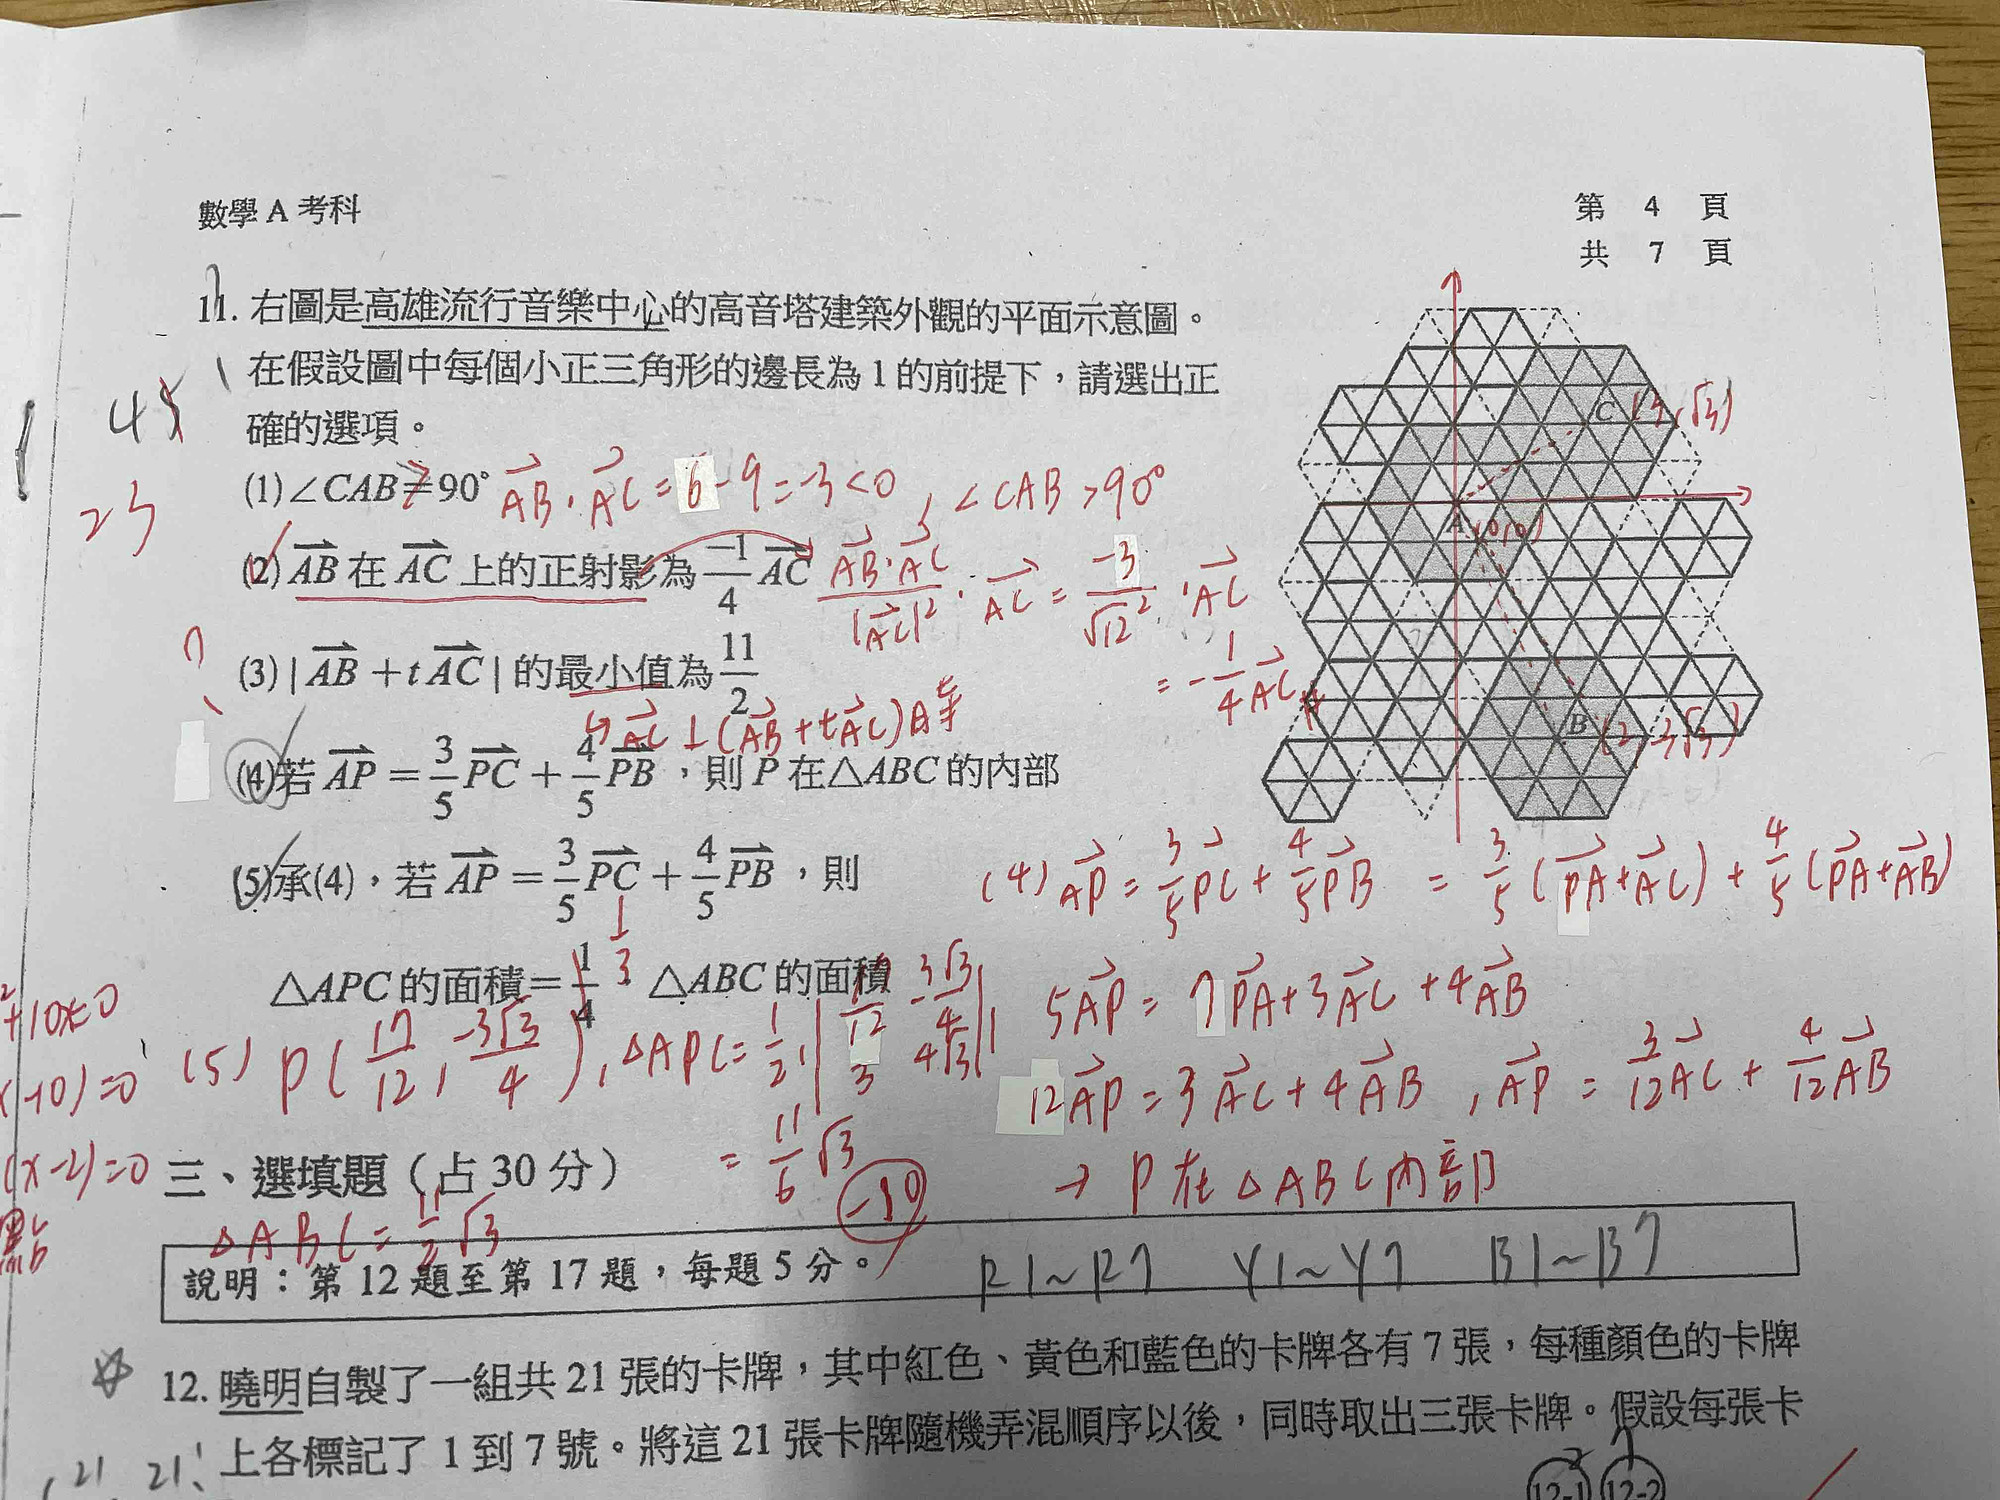 數學 A 考科
第 4 頁
共 7 頁
11. 右圖是高雄流行音樂中心的高音塔建築外觀的平面示意圖。
在假設圖中每個小正三角形的邊長為 1 的前提下，請選出正
確的選項。
45
23
C (3,√3)
A (0,0)
B (2,-3√3)
(1) ∠CAB=90° AB⃗·AC⃗ = 6-9 = -3 < 0, ∠CAB > 90°
(2) AB⃗ 在 AC⃗ 上的正射影為 -1/4 AC⃗ AB⃗·AC⃗/|AC⃗|² · AC⃗ = -3/√12² · AC⃗
= -1/4 AC⃗
(3) |AB⃗ + t AC⃗| 的最小值為 11/2
↳ AC⃗ ⊥ (AB⃗ + tAC⃗)時
(4) 若 AP⃗ = 3/5 PC⃗ + 4/5 PB⃗，則 P 在△ABC 的內部
(5) 承(4)，若 AP⃗ = 3/5 PC⃗ + 4/5 PB⃗，則
△APC 的面積 = 1/4 1/3 △ABC 的面積
(4) AP⃗ = 3/5 PC⃗ + 4/5 PB⃗ = 3/5 (PA⃗ + AC⃗) + 4/5 (PA⃗ + AB⃗)
5AP⃗ = 7PA⃗ + 3AC⃗ + 4AB⃗
12AP⃗ = 3AC⃗ + 4AB⃗, AP⃗ = 3/12 AC⃗ + 4/12 AB⃗
→ P 在 △ABC 內部
(5) P(17/12, -3√3/4), △APC = 1/2 |
= 11/6 √3
△ABC = 11/2 √3
-10
+10x=0
-10)=0
(x-2)=0
點
三、選填題（占 30 分）
說明：第 12 題至第 17 題，每題 5 分。
R1~R7 Y1~Y7 B1~B7
12. 曉明自製了一組共 21 張的卡牌，其中紅色、黃色和藍色的卡牌各有 7 張，每種顏色的卡牌
上各標記了 1 到 7 號。將這 21 張卡牌隨機弄混順序以後，同時取出三張卡牌。假設每張卡
21 21!
12-1 12-2